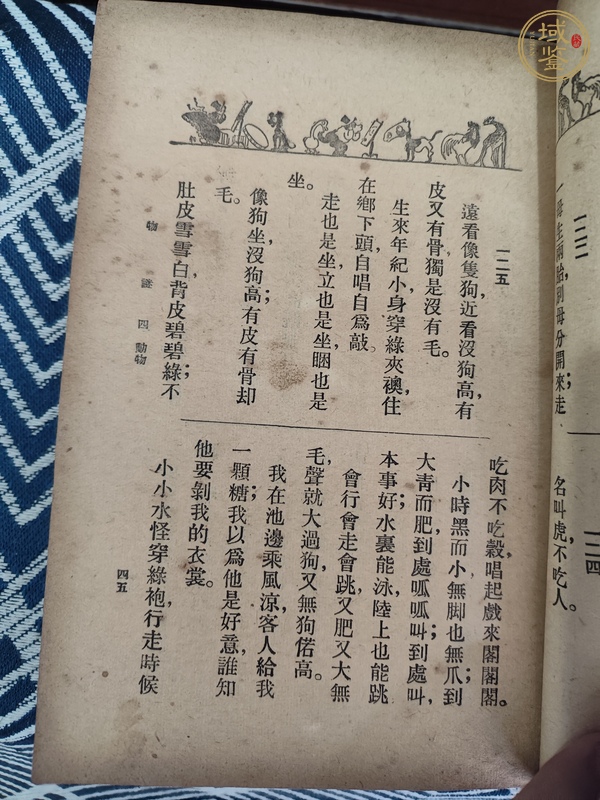 域鉴
一二三
一母生兩胎，到母分開來；走
一二四
名叫虎，不吃人。
一二五
遠看像隻狗，近看沒狗高，有
皮又有骨，獨是沒有毛。
生來年紀小，身穿綠夾襖，住
在鄉下頭，自唱自爲敲。
走也是坐，立也是坐，睏也是
坐。
像狗坐，沒狗高；有皮有骨却
毛。
肚皮雪雪白，背皮碧碧綠；不
吃肉，不吃穀，唱起戲來閣閣閣。
小時黑而小，無脚也無爪；到
大青而肥，到處呱呱叫；到處叫，
本事好；水裏能泳，陸上也能跳
會行會走會跳，又肥又大無
毛，聲就大過狗，又無狗偌高。
我在池邊乘風涼，客人給我
一顆糖；我以爲他是好意，誰知
他要剝我的衣裳。
小小水怪穿綠袍，行走時候
物謎 四 動物
四五